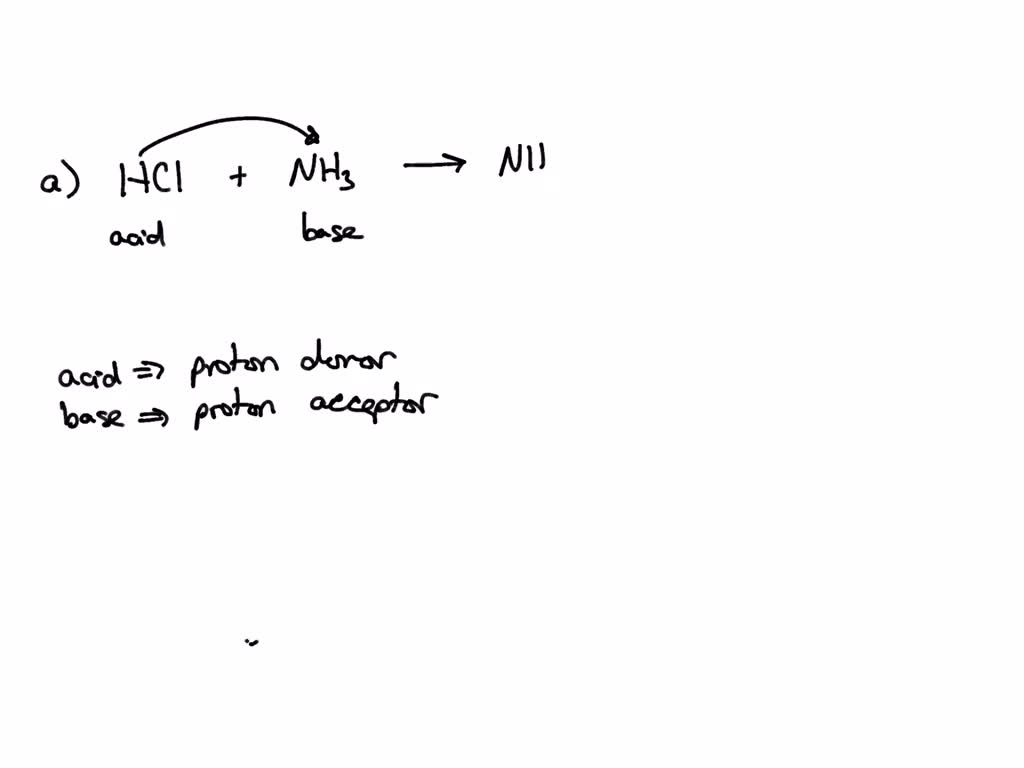 a) HCl + NH3 → NII
acid base
acid ⇒ proton donor
base ⇒ proton acceptor